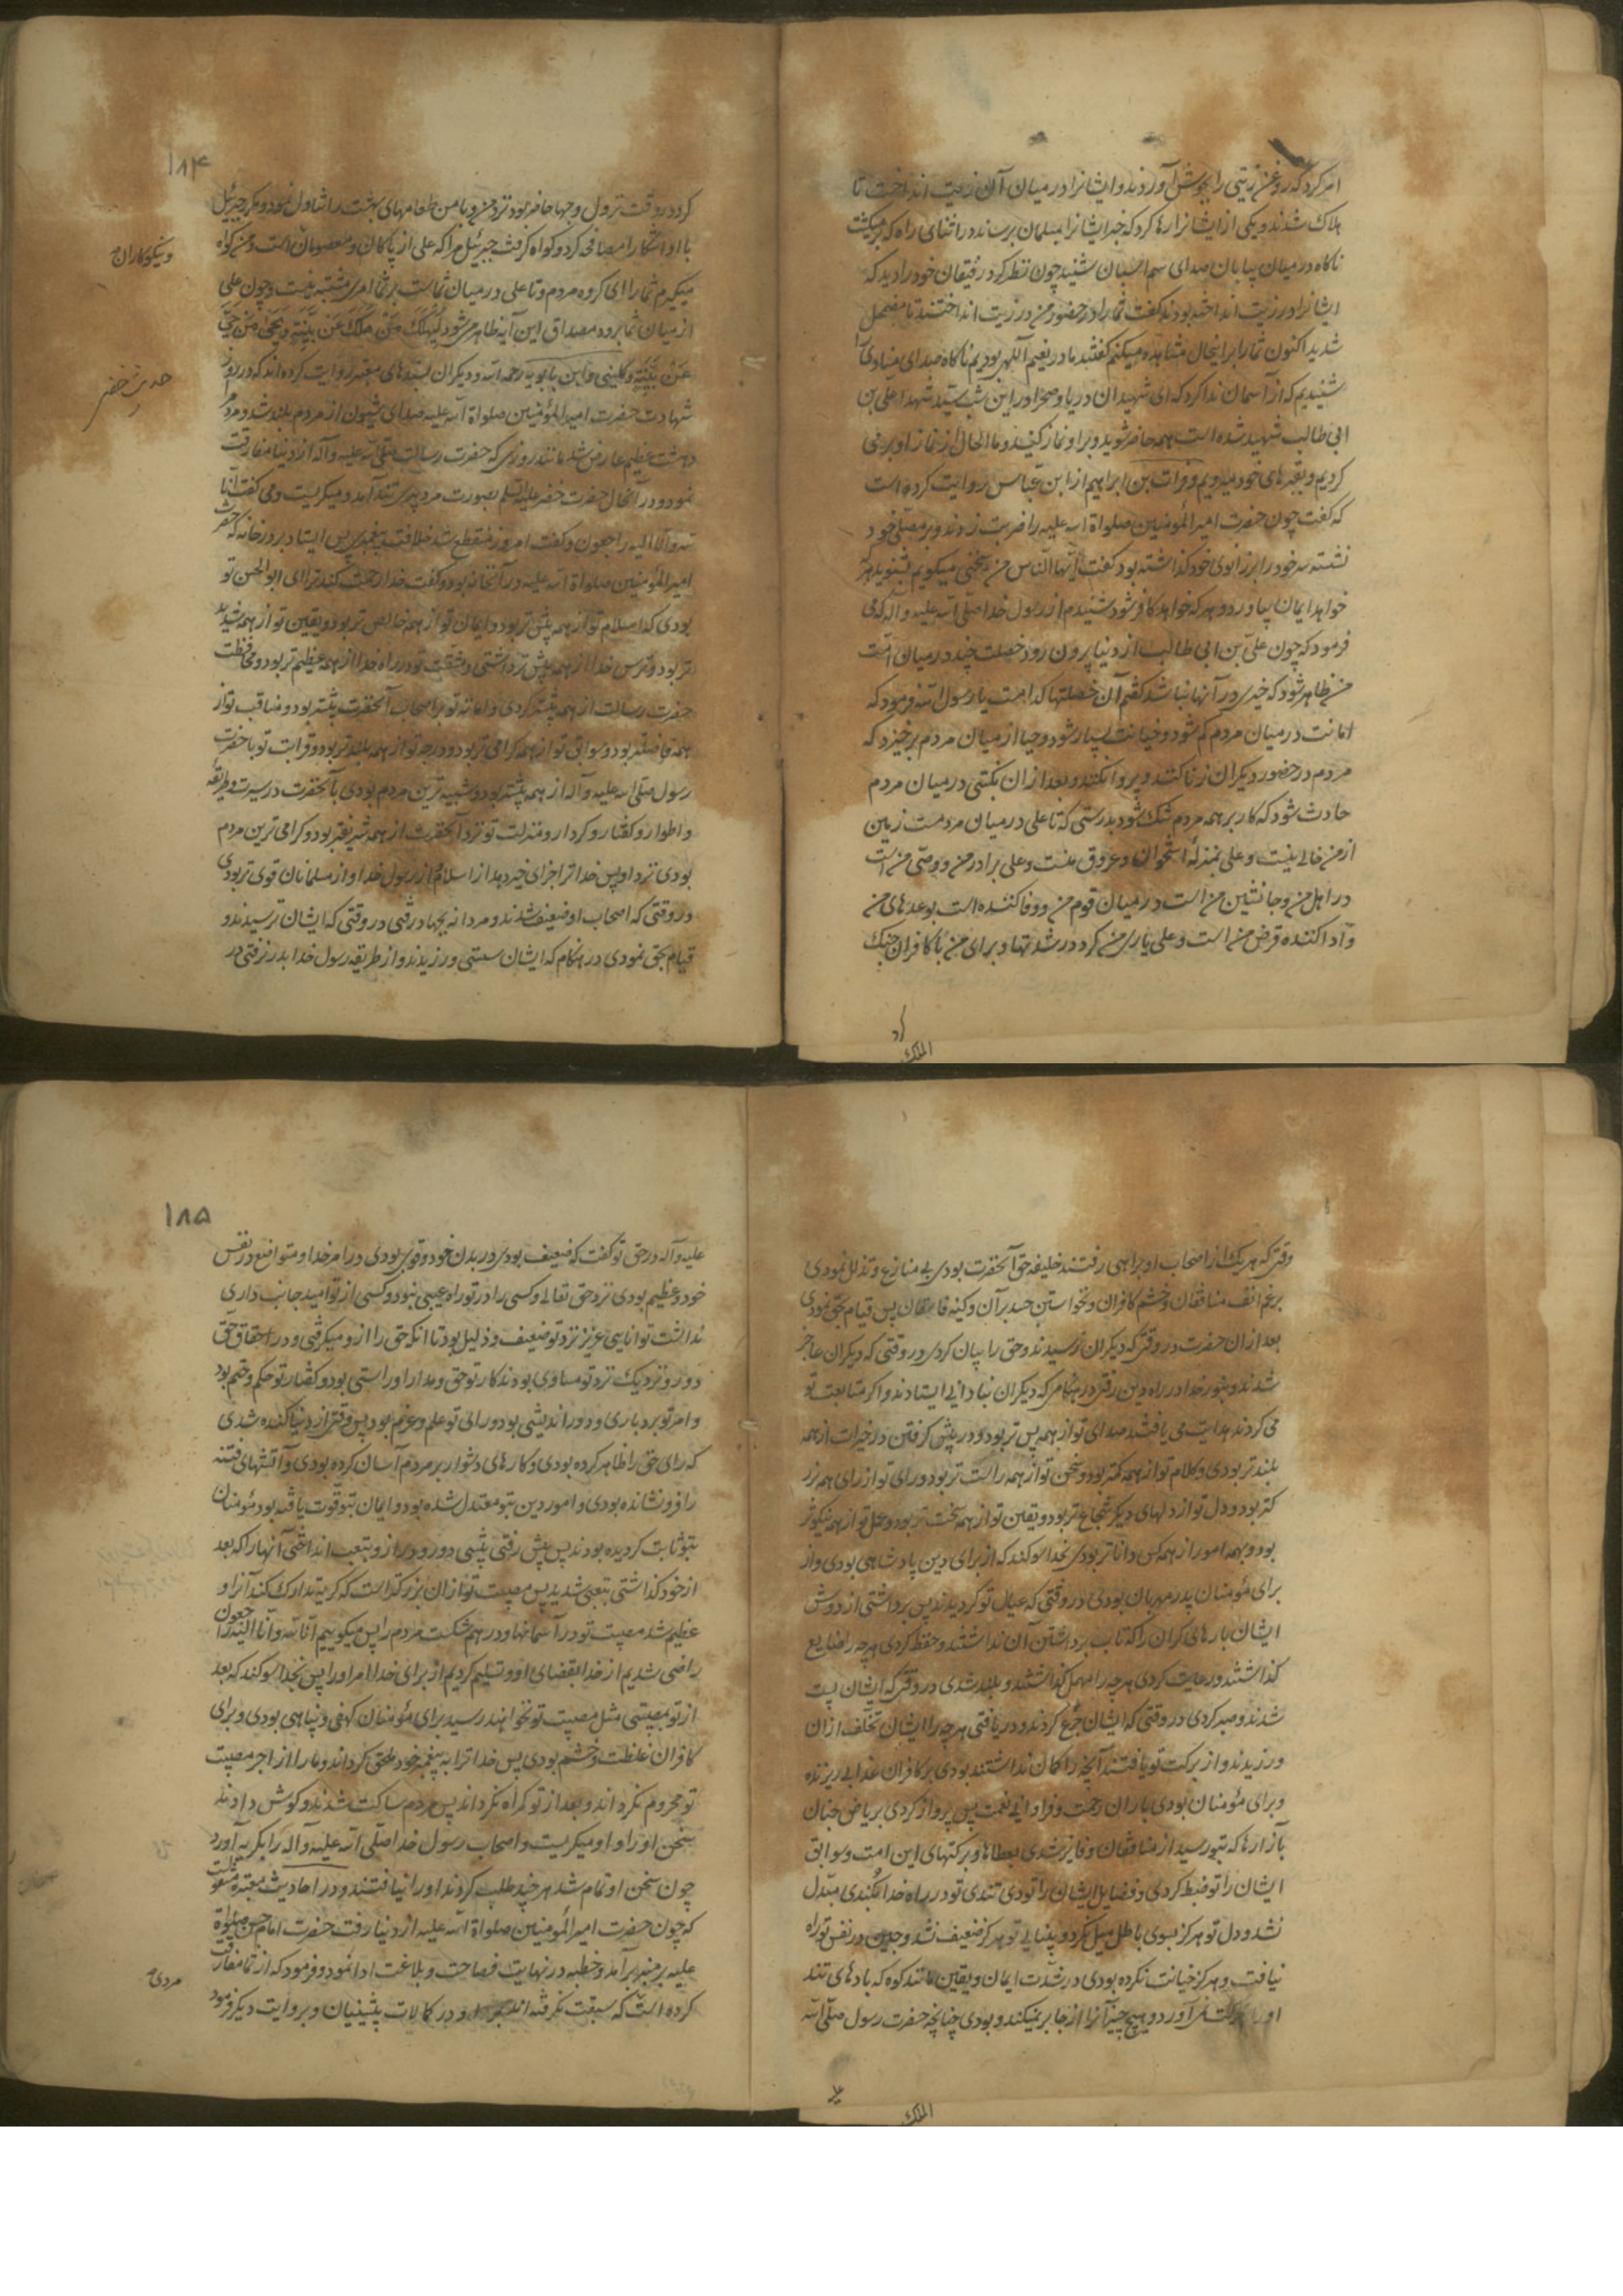 امر کرد که روغن زیتی را بجوش آوردند و ایشانرا در میان آن زیت انداخت تا
هلاک شدند و یکی از ایشانرا رها کرد که خبر ایشانرا بمسلمانان برساند در اثنای راه که برمیگشت
ناکاه در میان بیابان صدای سم اسبان شنید چون نظر کرد رفیقان خود را دید که
ایشانرا در زیت انداخته بودند گفت شما را در حضور من در زیت انداختند تا مضمحل
شدید اکنون شما را بر اینحال مشاهده میکنم گفتند ما در نعیم الهی بودیم ناکاه صدای منادی را
شنیدیم که از آسمان ندا کرد که ای شهیدان دریا و صحرا در این شب سید شهدا علی بن
ابی طالب شهید شده است همه حاضر شوید و بر او نماز کنید و ما الحال از نماز او برمی
کردیم و بقبرهای خود میرویم و فرات بن ابراهیم از ابن عباس روایت کرده است
که گفت چون حضرت امیر المؤمنین صلواة الله علیه را ضربت زدند و بر مصلی خود
نشسته سر خود را بر زانوی خود گذاشته بود گفت ایها الناس من سخنی میگویم بشنوید هر که
خواهد ایمان بیاورد و هر که خواهد کافر شود شنیدم از رسول خدا صلی الله علیه و آله که می
فرمود که چون علی بن ابی طالب از دنیا بیرون رود خصلت چند در میان امت
من ظاهر شود که خیری در آنها نباشد گفتم آن خصلتها کدامست یا رسول الله فرمود که
امانت در میان مردم کم شود و خیانت بسیار شود و حیا از میان مردم برخیزد که
مردم در حضور دیگران زنا کنند و پروا نکنند و بعد از ان نکبتی در میان مردم
حادث شود که کار بر همه مردم تنک شود بدرستی که تا علی در میان مردمست زمین
از من خالی نیست و علی بمنزله استخوان و عروق منست و علی برادر من و وصی من است
در اهل من و جانشین من است در میان قوم من و وفا کننده است بوعدهای من
و ادا کننده قرض من است و علی یاری من کرد در شدتها و برای من با کافران جنک
کرد
الملک
۱۸۴
کرد در وقت نزول وحیها حاضر بود نزد من و با من طعامهای بهشت را تناول نمود و مکرر جبرئیل
با او اشکارا مصافحه کرد و کواه گرفت جبرئیل مرا که علی از پاکان و معصومان است و من کواه
و نیکوکاران
میگیرم شما را ای گروه مردم و تا علی در میان شماست بر شما امری مشتبه نیست و چون علی
از میان شما برود مصداق این آیه ظاهر می شود لیهلک من هلک عن بینة و یحیی من حی
عن بینة و کلینی و ابن بابویه رحمه الله و دیگران بسندهای معتبر روایت کرده اند که در روز
حدیث خضر
شهادت حضرت امیر المؤمنین صلواة الله علیه صدای شیون از مردم بلند شد و مردم را
دهشت عظیم عارض شد مانند روزی که حضرت رسالت صلی الله علیه و آله از دنیا مفارقت
نمود و در آنحال حضرت خضر علیه السلم بصورت مرد پیری تند آمد و میگریست و می گفت انا
لله و انا الیه راجعون و گفت امروز منقطع شد خلافت پیغمبری پس ایستاد بر در خانه که حضرت
امیر المؤمنین صلواة الله علیه در آنخانه بود و گفت خدا رحمت کند ترا ای ابو الحسن تو
بودی که اسلام تو از همه پیش تر بود و ایمان تو از همه خالص تر بود و یقین تو از همه شدید
تر بود و ترس خدا از همه بیش تر داشتی و مشقت تو در راه خدا از همه عظیم تر بود و محافظت
حضرت رسالت از همه بیشتر کردی و امانه تو بر اصحاب آنحضرت بیشتر بود و مناقب تو از
همه فاضلتر بود و سوابق تو از همه گرامی تر بود و درجه تو از همه بلند تر بود و قرابت تو با حضرت
رسول صلی الله علیه و آله از همه بیشتر بود و شبیه ترین مردم بودی بآنحضرت در سیرت و طریقه
و اطوار و گفتار و کردار و منزلت تو نزد آنحضرت از همه شریفتر بود و گرامی ترین مردم
بودی نزد او پس خدا ترا جزای خیر دهد از اسلام و از رسول خدا و از مسلمانان قوی تر بودی
در وقتی که اصحاب او ضعیف شدند و مردانه بجهاد رفتی در وقتی که ایشان ترسیدند و
قیام بحق نمودی در هنکام که ایشان سستی ورزیدند و از طریقه رسول خدا بدر نرفتی در
وقتی که هر یک از اصحاب او براهی رفتند خلیفه حق آنحضرت بودی بی منازع و تذلل نمودی
برغم انف منافقان و خشم کافران و نخواستن حسد بران و کینه فاسقان پس قیام بحق نمودی
بعد از ان حضرت در وقتی که دیگران ترسیدند و حق را بیان کردی در وقتی که دیگران عاجز
شدند و بنور خدا در راه دین رفتی در هنکامی که دیگران بنادانی ایستادند و اگر متابعت تو
می کردند هدایت می یافتند صدای تو از همه پس تر بود و در پیش گرفتن در خیرات از همه
بلند تر بودی و کلام تو از همه کمتر بود و سخن تو از همه راست تر بود و رای تو از رای همه بزر
کتر بود و دل تو از دلهای دیگر شجاع تر بود و یقین تو از همه سخت تر بود و عمل تو از همه نیکوتر
بود و بهمه امور از همه کس داناتر بودی بخدا سوکند که از برای دین پادشاهی بودی و از
برای مؤمنان پدر مهربان بودی در وقتی که عیال تو گردیدند پس برداشتی از دوش
ایشان بارهای گران را که تاب برداشتن آن نداشتند و حفظ کردی هر چه را ضایع
گذاشتند و رعایت کردی هر چه را مهمل گذاشتند و بلند شدی در وقتی که ایشان پست
شدند و صبر کردی در وقتی که ایشان جزع کردند و دریافتی هر چه را ایشان تخلف ازان
ورزیدند و از برکت تو یافتند آنچه را گمان نداشتند بودی بر کافران عذابی ریزنده
و برای مؤمنان بودی باران رحمت و فراوانی نعمت پس پرواز کردی بریاض جنان
بآزارها که بتو رسید از منافقان و فایز شدی بعطاها و برکتهای این امت و سوابق
ایشان را تو ضبط کردی و فضایل ایشان را تو بردی تندی تو در راه خدا بکندی مبدل
نشد و دل تو هرگز بسوی باطل میل نکرد و بینایی تو هرگز ضعیف نشد و جبن در نفس تو راه
نیافت و هرگز خیانت نکرده بودی در شدت ایمان و یقین مانند کوه که بادهای تند
او را بحرکت نمی آورد و هیچ چیز آنرا از جا بر نمیکند و بودی چنانچه حضرت رسول صلی الله
علیه
الملک
۱۸۵
علیه و آله در حق تو گفت که ضعیف بودی در بدن خود و قوی بودی در امر خدا و متواضع در نفس
خود و عظیم بودی نزد حق تعالی و کسی را در تو راه عیبی نبود و کسی از تو امید جانب داری
نداشت توانایی عزیز نزد تو ضعیف و ذلیل بود تا انکه حق را از و میگرفتی و در احقاق حق
دور و نزدیک نزد تو مساوی بودند کار تو حق و مدارا و راستی بود و گفتار تو حکم و حتم بود
و امر تو بردباری و دوراندیشی بود و رای تو علم و عزم بود پس وقتی از دنیا کنده شدی
که رای حق را ظاهر کرده بودی و کارهای دشوار بر مردم آسان کرده بودی و آتشهای فتنه
را فرو نشانده بودی و امور دین بتو معتدل شده بود و ایمان بتو قوت یافته بود مؤمنان
بتو ثابت گردیده بودند پس پیش رفتی پیشی دور و دراز و بتعب انداختی آنها را که بعد
از خود گذاشتی بتعبی شدید پس مصیبت تو از ان بزرگتر است که گریه تدارک کند آنرا و
عظیم شد مصیبت تو در آسمانها و در هم شکست مردم را پس میگوییم انا لله و انا الیه راجعون
راضی شدیم از خدا بقضای او و تسلیم کردیم از برای خدا امر او را پس بخدا سوکند که بعد
از تو بمصیبتی مثل مصیبت تو نخواهند رسید برای مؤمنان کهفی و پناهی بودی و برای
کافران غلظت و خشم بودی پس خدا ترا به پیغمبر خود ملحق گرداند و ما را از اجر مصیبت
تو محروم نگرداند و بعد از تو گمراه نگرداند پس مردم ساکت شدند و گوش دادند
سخن او را و او میگریست و اصحاب رسول خدا صلی الله علیه و آله را بگریه آورد
چون سخن او تمام شد هر چند طلب کردند او را نیافتند و در احادیث معتبره منقولست
که چون حضرت امیر المؤمنین صلواة الله علیه از دنیا رفت حضرت امام حسن صلواة
علیه بر منبر برآمد و خطبه در نهایت فصاحت و بلاغت ادا نمود و فرمود که از شما مفارقت
مردی
کرده است که سبقت نگرفته اند بر او در کمالات پیشینیان و بروایت دیگر فرمود